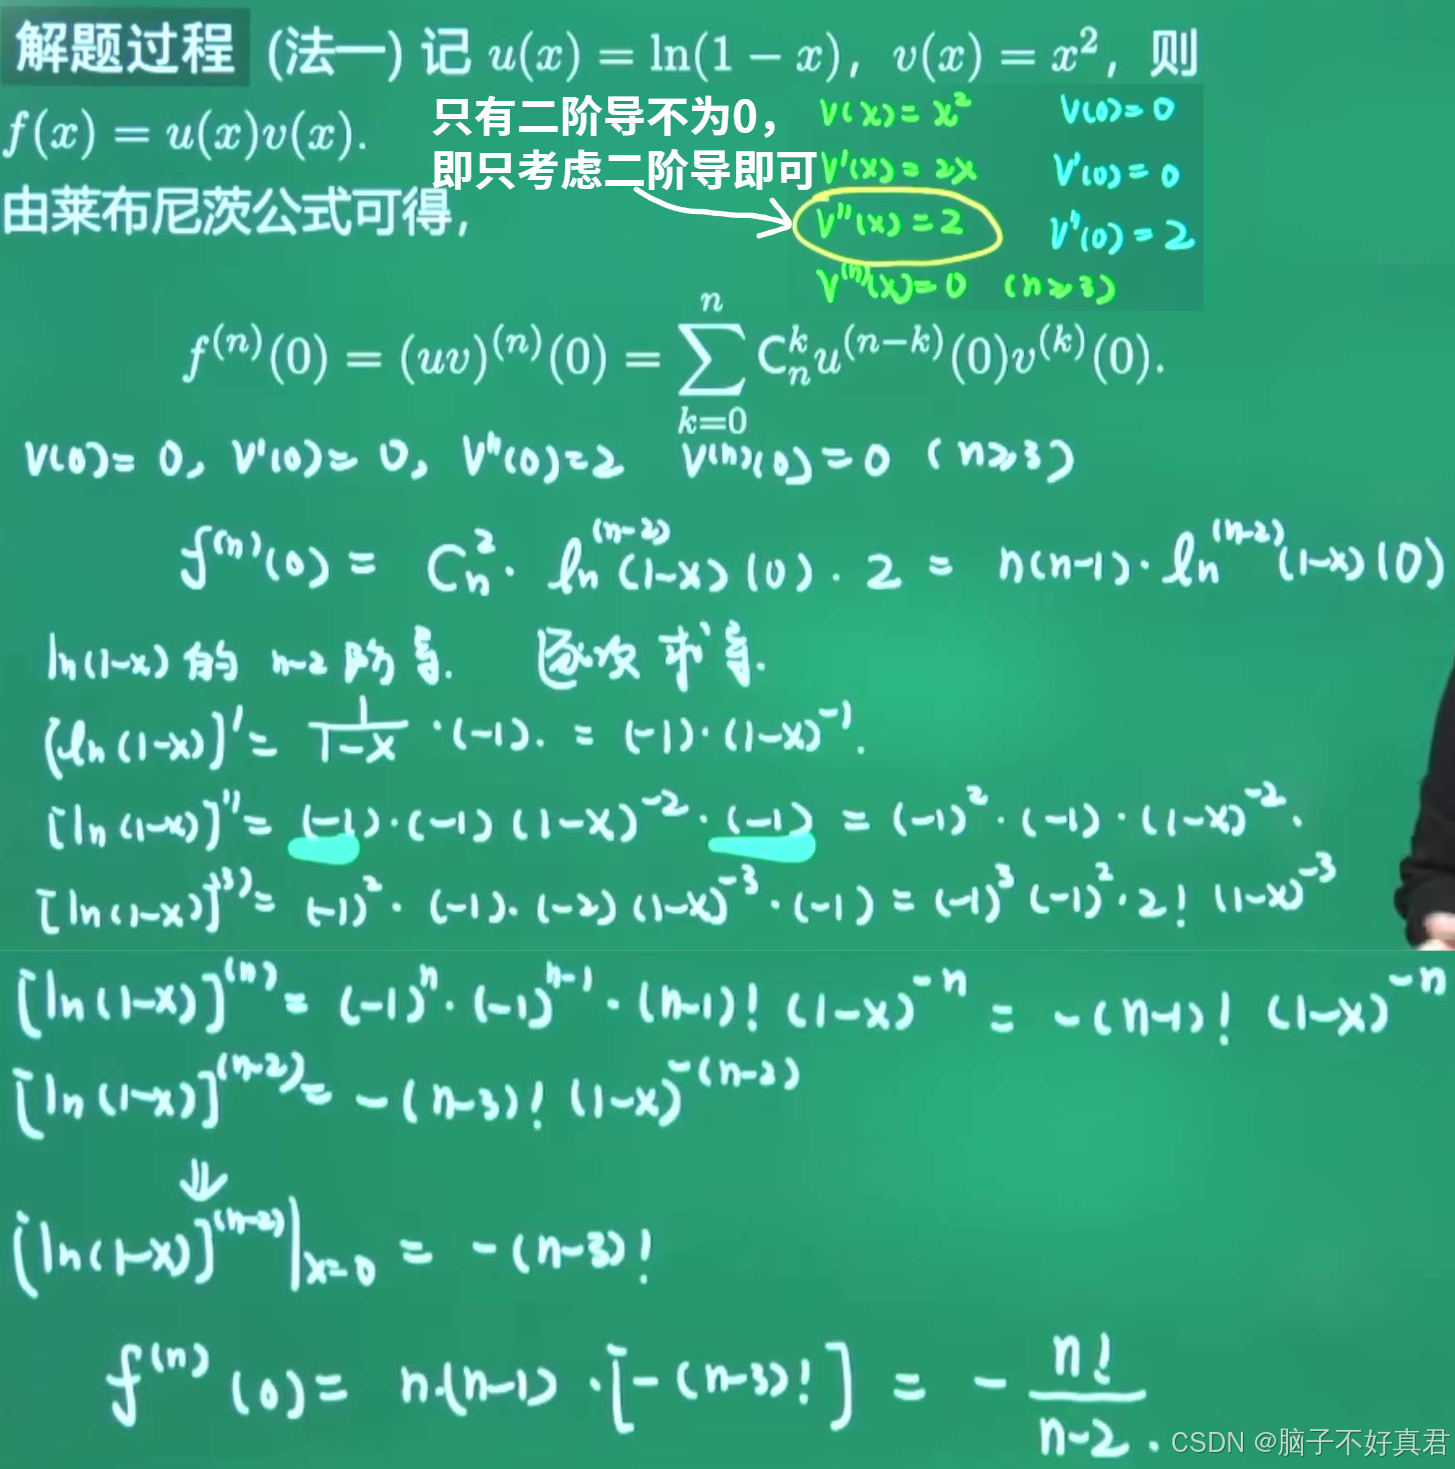 解题过程 (法一) 记 u(x) = ln(1 − x), v(x) = x², 则
f(x) = u(x)v(x).
只有二阶导不为0,
即只考虑二阶导即可
V(x)= x² V(0)= 0
V'(x)= 2x V'(0)= 0
V''(x)= 2 V''(0)= 2
V⁽ⁿ⁾(x)= 0 (n≥3)
由莱布尼茨公式可得,
f⁽ⁿ⁾(0) = (uv)⁽ⁿ⁾(0) = ∑_{k=0}^{n} C_n^k u^{(n−k)}(0)v^{(k)}(0).
V(0)= 0, V'(0)= 0, V''(0)=2 V⁽ⁿ⁾(0)= 0 (n≥3)
f⁽ⁿ⁾(0) = C_n^2 · ln^{(n-2)}(1-x)(0) · 2 = n(n-1) · ln^{(n-2)}(1-x)(0)
ln(1-x) 的 n-2 阶导. 逐次求导.
[ln(1-x)]' = \frac{1}{1-x} · (-1). = (-1)·(1-x)^{-1}.
[ln(1-x)]'' = (-1)·(-1)(1-x)^{-2}·(-1) = (-1)²·(-1)·(1-x)^{-2}.
[ln(1-x)]^{(3)} = (-1)²·(-1)·(-2)(1-x)^{-3}·(-1) = (-1)³(-1)²·2!(1-x)^{-3}
[ln(1-x)]^{(n)} = (-1)^n·(-1)^{n-1}·(n-1)!(1-x)^{-n} = -(n-1)!(1-x)^{-n}
[ln(1-x)]^{(n-2)} = -(n-3)!(1-x)^{-(n-2)}
⇓
[ln(1-x)]^{(n-2)}|_{x=0} = -(n-3)!
f⁽ⁿ⁾(0) = n·(n-1)·[-(n-3)!] = -\frac{n!}{n-2}.
CSDN @脑子不好真君